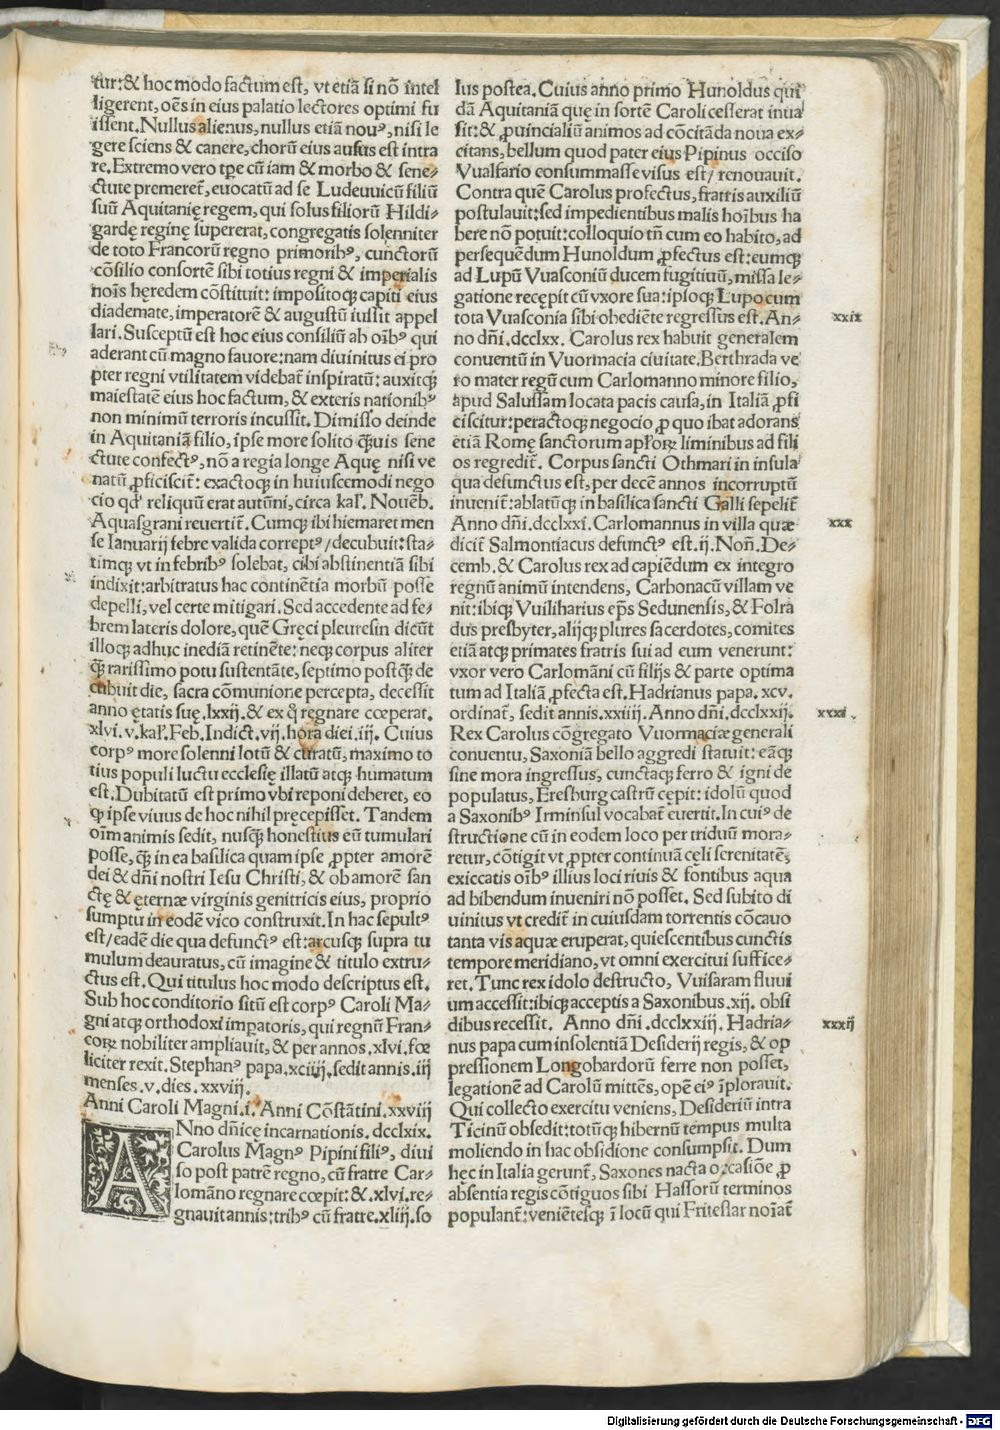 tur:& hoc modo factum est, vt etiã si nõ intel
ligerent, oẽs in eius palatio lectores optimi fu
issent. Nullus alienus, nullus etiã nouꝰ, nisi le
gere sciens & canere, chorũ eius ausus est intra
re. Extremo vero tꝑe cũ iam & morbo & sene⸗
ctute premeret̃, euocatũ ad se Ludeuuicũ filiũ
suũ Aquitanię regem, qui solus filiorũ Hildi⸗
gardę reginę supererat, congregatis solenniter
de toto Francorũ regno primoribꝰ, cunctorũ
cõsilio consortẽ sibi totius regni & imperialis
noĩs hęredem cõstituit: impositoqȝ capiti eius
diademate, imperatorẽ & augustũ iussit appel
lari. Susceptũ est hoc eius consiliũ ab oĩbꝰ qui
aderant cũ magno fauore: nam diuinitus ei pro
pter regni vtilitatem videbat̃ inspiratũ: auxitqȝ
maiestatẽ eius hoc factum, & exteris nationibꝰ
non minimũ terroris incussit. Dimisso deinde
in Aquitaniã filio, ipse more solito q̃ȝuis sene
ctute confectꝰ, nõ a regia longe Aquę nisi ve
natũ ꝓficiscit̃: exactoqȝ in huiuscemodi nego
cio qđ reliquũ erat autũni, circa kal̃. Nouẽb.
Aquasgrani reuertit̃. Cumqȝ ibi hiemaret men
se Ianuarij febre valida correptꝰ/decubuit: sta⸗
timqȝ vt in febribꝰ solebat, cibi abstinentiã sibi
indixit: arbitratus hac continẽtia morbũ posse
depelli, vel certe mitigari. Sed accedente ad fe⸗
brem lateris dolore, quẽ Gręci pleuresin dicũt
illoqȝ adhuc inediã retinẽte: neqȝ corpus aliter
q̃ȝ rarissimo potu sustentãte, septimo postq̃ȝ de
cubuit die, sacra cõmunione percepta, decessit
anno ętatis suę .lxxij. & ex q̊ regnare cœperat.
xlvi. v. kal̃. Feb. Indict. vij. hora diei .iij. Cuius
corpꝰ more solenni lotũ & curatũ, maximo to
tius populi luctu ecclesię illatũ atqȝ humatum
est. Dubitatũ est primo vbi reponi deberet, eo
ꝙ ipse viuus de hoc nihil pręcepisset. Tandem
oĩm animis sedit, nusq̃ȝ honestius eũ tumulari
posse, q̃ȝ in ea basilica quam ipse ꝓpter amorẽ
dei & dñi nostri Iesu Christi, & ob amorẽ san
ctę & ęternæ virginis genitricis eius, proprio
sumptu in eodẽ vico construxit. In hac sepultꝰ
est/ eadẽ die qua defunctꝰ est: arcusqȝ supra tu
mulum deauratus, cũ imagine & titulo extru⸗
ctus est. Qui titulus hoc modo descriptus est.
Sub hoc conditorio sitũ est corpꝰ Caroli Ma⸗
gni atqȝ orthodoxi imperatoris, qui regnũ Fran⸗
coꝝ nobiliter ampliauit, & per annos .xlvi. fœ
liciter rexit. Stephanꝰ papa .xciiij. sedit annis .iij
menses .v. dies .xxviij.
Anni Caroli Magni .i. Anni Cõstãtini .xxviij
ANno dñicę incarnationis. dcclxix.
Carolus Magnꝰ Pipini filiꝰ, diui
so post patrẽ regno, cũ fratre Car⸗
lomãno regnare cœpit: & .xlvi. re⸗
gnauit annis: tribꝰ cũ fratre .xliij. so
lus postea. Cuius anno primo Hunoldus qui
dã Aquitaniã quę in sortẽ Caroli cesserat inua
sit: & ꝓuincialiũ animos ad cõcitãda noua ex⸗
citans, bellum quod pater eius Pipinus occiso
Vualfario consummasse visus est/ renouauit.
Contra quẽ Carolus profectus, fratris auxiliũ
postulauit: sed impedientibus malis hoĩbus ha
bere nõ potuit: colloquio tñ cum eo habito, ad
persequẽdum Hunoldum ꝓfectus est: eumqȝ
ad Lupũ Vuasconiũ ducem fugitiuũ, missa le⸗
gatione recępit cũ vxore sua: ipsoqȝ Lupo cum
tota Vuasconia sibi obediẽte regressus est. An⸗
xxix
no dñi .dcclxx. Carolus rex habuit generalem
conuentũ in Vuormacia ciuitate. Berthrada ve
ro mater regũ cum Carlomanno minore filio,
apud Salussam locata pacis causa, in Italiã ꝓfi
ciscitur: peractoqȝ negocio ꝓ quo ibat adorans
etiã Romę sanctorum apl̃oꝝ liminibus ad fili
os regredit̃. Corpus sancti Othmari in insula
qua defunctus est, per decẽ annos incorruptũ
inuenit̃: ablatũqȝ in basilica sancti Galli sepelit̃
Anno dñi .dcclxxi. Carlomannus in villa quæ
xxx
dicit̃ Salmontiacus defunctꝰ est .ij. Noñ. De⸗
cemb. & Carolus rex ad capiẽdum ex integro
regnũ animũ intendens, Carbonacũ villam ve
nit: ibiqȝ Vuiliharius ep̃s Sedunensis, & Folra
dus presbyter, alijqȝ plures sacerdotes, comites
etiã atqȝ primates fratris sui ad eum venerunt:
vxor vero Carlomãni cũ filijs & parte optima
tum ad Italiã ꝓfecta est. Hadrianus papa .xcv.
ordinat̃, sedit annis .xxiiij. Anno dñi .dcclxxij.
xxxi
Rex Carolus cõgregato Vuormaciæ generali
conuentu, Saxoniã bello aggredi statuit: eãqȝ
sine mora ingressus, cunctaqȝ ferro & igni de
populatus, Eresburg castrũ cępit: idolũ quod
a Saxonibꝰ Irminsul vocabat̃ euertit. In cuiꝰ de
structione cũ in eodem loco per triduũ mora⸗
retur, cõtigit vt ꝓpter continuã cęli serenitatẽ,
exiccatis oĩbꝰ illius loci riuis & fontibus aqua
ad bibendum inueniri nõ posset. Sed subito di
uinitus vt credit̃ in cuiusdam torrentis cõcauo
tanta vis aquæ eruperat, quiescentibus cunctis
tempore meridiano, vt omni exercitui suffice⸗
ret. Tunc rex idolo destructo, Vuisaram fluui
um accessit: ibiqȝ acceptis a Saxonibus .xij. obsi
dibus recessit. Anno dñi .dcclxxiij. Hadria⸗
xxxij
nus papa cum insolentiã Desiderij regis, & op
pressionem Longobardorũ ferre non posset,
legationẽ ad Carolũ mittẽs, opẽ eiꝰ ĩplorauit.
Qui collecto exercitu veniens, Desideriũ intra
Ticinũ obsedit: totũqȝ hibernũ tempus multa
moliendo in hac obsidione consumpsit. Dum
hęc in Italia gerunt̃, Saxones nacta occasiõe ꝓ
absentia regis cõtiguos sibi Hassorũ terminos
populant̃: veniẽtesqȝ ĩ locũ qui Friteslar noĩat̃
Digitalisierung gefördert durch die Deutsche Forschungsgemeinschaft - DFG